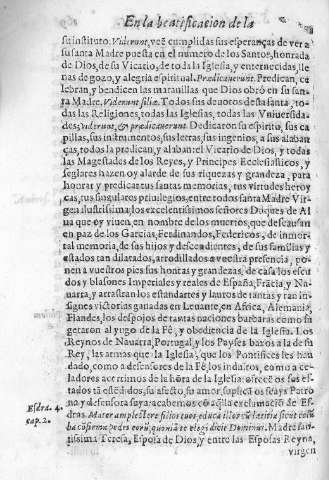 En la beatificacion de la
su instituto. Viderunt, veẽ cumplidas sus esperanças de ver a
su santa Madre puesta en el numero de los Santos, honrada
de Dios, de su Vicario, de toda la Iglesia, y enternecidas, lle
nas de gozo, y alegria espiritual. Prædicauerunt. Predican, ce
lebran, y bendicen las marauillas que Dios obró en su san
ta Madre. Viderunt filiæ. Todos sus deuotos desta santa, to-
das las Religiones, todas las Iglesias, todas las Vniuersida
des, viderunt, & prædicauerunt. Dedicaron su espiritu, sus ca
pillas, sus instrumentos, sus letras, sus ingenios, a sus alaban
ças, todos la predican, y alaban el Vicario de Dios, y todas
las Magestades de los Reyes, y Principes Ecclesiasticos, y
seglares hazen oy alarde de sus riquezas y grandeza, para
honrar y predicar tus santas memorias, tus virtudes heroy
cas, tus singulares priuilegios, entre todos santa Madre Vir
gen ilustrissima, los excelentissimos señores Duques de Al
ua que oy viuen, en nombre de los muertos, que descansan
en paz de los Garcias, Ferdinandos, Federicos, de inmor-
tal memoria, de sus hijos y descendientes, de sus familias y
estados tan dilatados, arrodillados a vuestra presencia, po-
nen a vuestros pies sus honras y grandezas, de casa los escu
dos y blasones Imperiales y reales de España, Frãcia, y Na-
uarra, y arrastran los estandartes y lauros de tantas y tan in-
signes victorias ganadas en Leuante, en Africa, Alemania,
Flandes, los despojos de tantas naciones barbaras como su
getaron al yugo de la Fè, y obediencia de la Iglesia. Los
Reynos de Nauarra, Portugal, y los Payses baxos a la de su
Rey, las armas que la Iglesia, que los Pontifices les han
dado, como a defensores de la Fè, los indultos, como a ce-
ladores acerrimos de la hõra de la Iglesia ofrecẽ os sus es-
tados tã estẽdidos, su afecto, su amor, suplicã os seays Patro
na y defensora suya acabemos cõ aq̃lla exclamaciõ de Es-
Esdræ. 4. cap. 2.
dras. Mater amplectere filios tuos, educa illos cũ lætitia sicut colũ
ba cõfirma pedes eorũ, quoniã te elegi dicit Dominus. Madre san-
tissima Teresa, Esposa de Dios, y entre las Esposas Reyna,
virgen